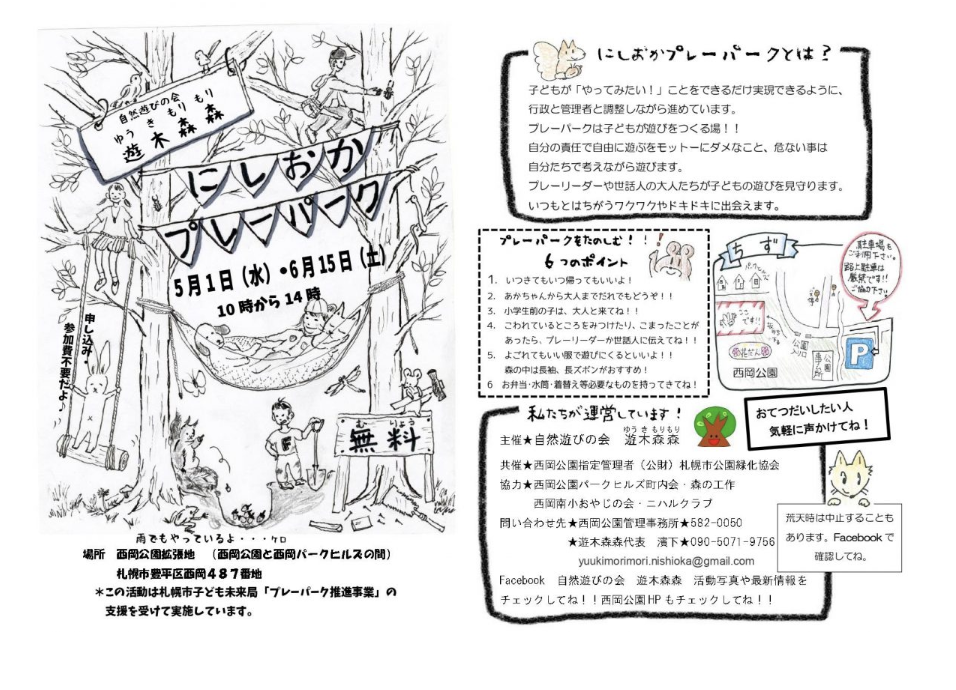 自然遊びの会
ゆう き もり もり
遊 木 森 森
にしおか
プレーパーク
5月1日（水）•6月15日（土）
10時から14時
申し込み・
参加費不要だよ♪
む りょう
無料
F
雨でもやっているよ・・・ケロ
場所　西岡公園拡張地　（西岡公園と西岡パークヒルズの間）
札幌市豊平区西岡４８７番地
＊この活動は札幌市子ども未来局「プレーパーク推進事業」の
支援を受けて実施しています。
にしおかプレーパークとは？
子どもが「やってみたい！」ことをできるだけ実現できるように、
行政と管理者と調整しながら進めています。
プレーパークは子どもが遊びをつくる場！！
自分の責任で自由に遊ぶをモットーにダメなこと、危ない事は
自分たちで考えながら遊びます。
プレーリーダーや世話人の大人たちが子どもの遊びを見守ります。
いつもとはちがうワクワクやドキドキに出会えます。
プレーパークをたのしむ！！
6つのポイント
1. いつきてもいつ帰ってもいいよ！
2. あかちゃんから大人までだれでもどうぞ！！
3. 小学生前の子は、大人と来てね！！
4. こわれているところをみつけたり、こまったことが
あったら、プレーリーダーか世話人に伝えてね！！
5. よごれてもいい服で遊びにくるといいよ！！
森の中は長袖、長ズボンがおすすめ！
6 お弁当・水筒・着替え等必要なものを持ってきてね！
ちず
駐車場を
ご利用下さい。
路上駐車は
厳禁です!!
ご協力下さい
ここです!!
公園
入り口
公園
事務所
P
西岡公園
私たちが運営しています！
主催★自然遊びの会　遊木森森
ゆう き もりもり
共催★西岡公園指定管理者（公財）札幌市公園緑化協会
協力★西岡公園パークヒルズ町内会・森の工作
西岡南小おやじの会・ニハルクラブ
問い合わせ先★西岡公園管理事務所★582-0050
★遊木森森代表　濱下★090-5071-9756
yuukimorimori.nishioka@gmail.com
Facebook　自然遊びの会　遊木森森　活動写真や最新情報を
チェックしてね！！西岡公園HPもチェックしてね！！
おてつだいしたい人
気軽に声かけてね！
荒天時は中止することも
あります。Facebookで
確認してね。